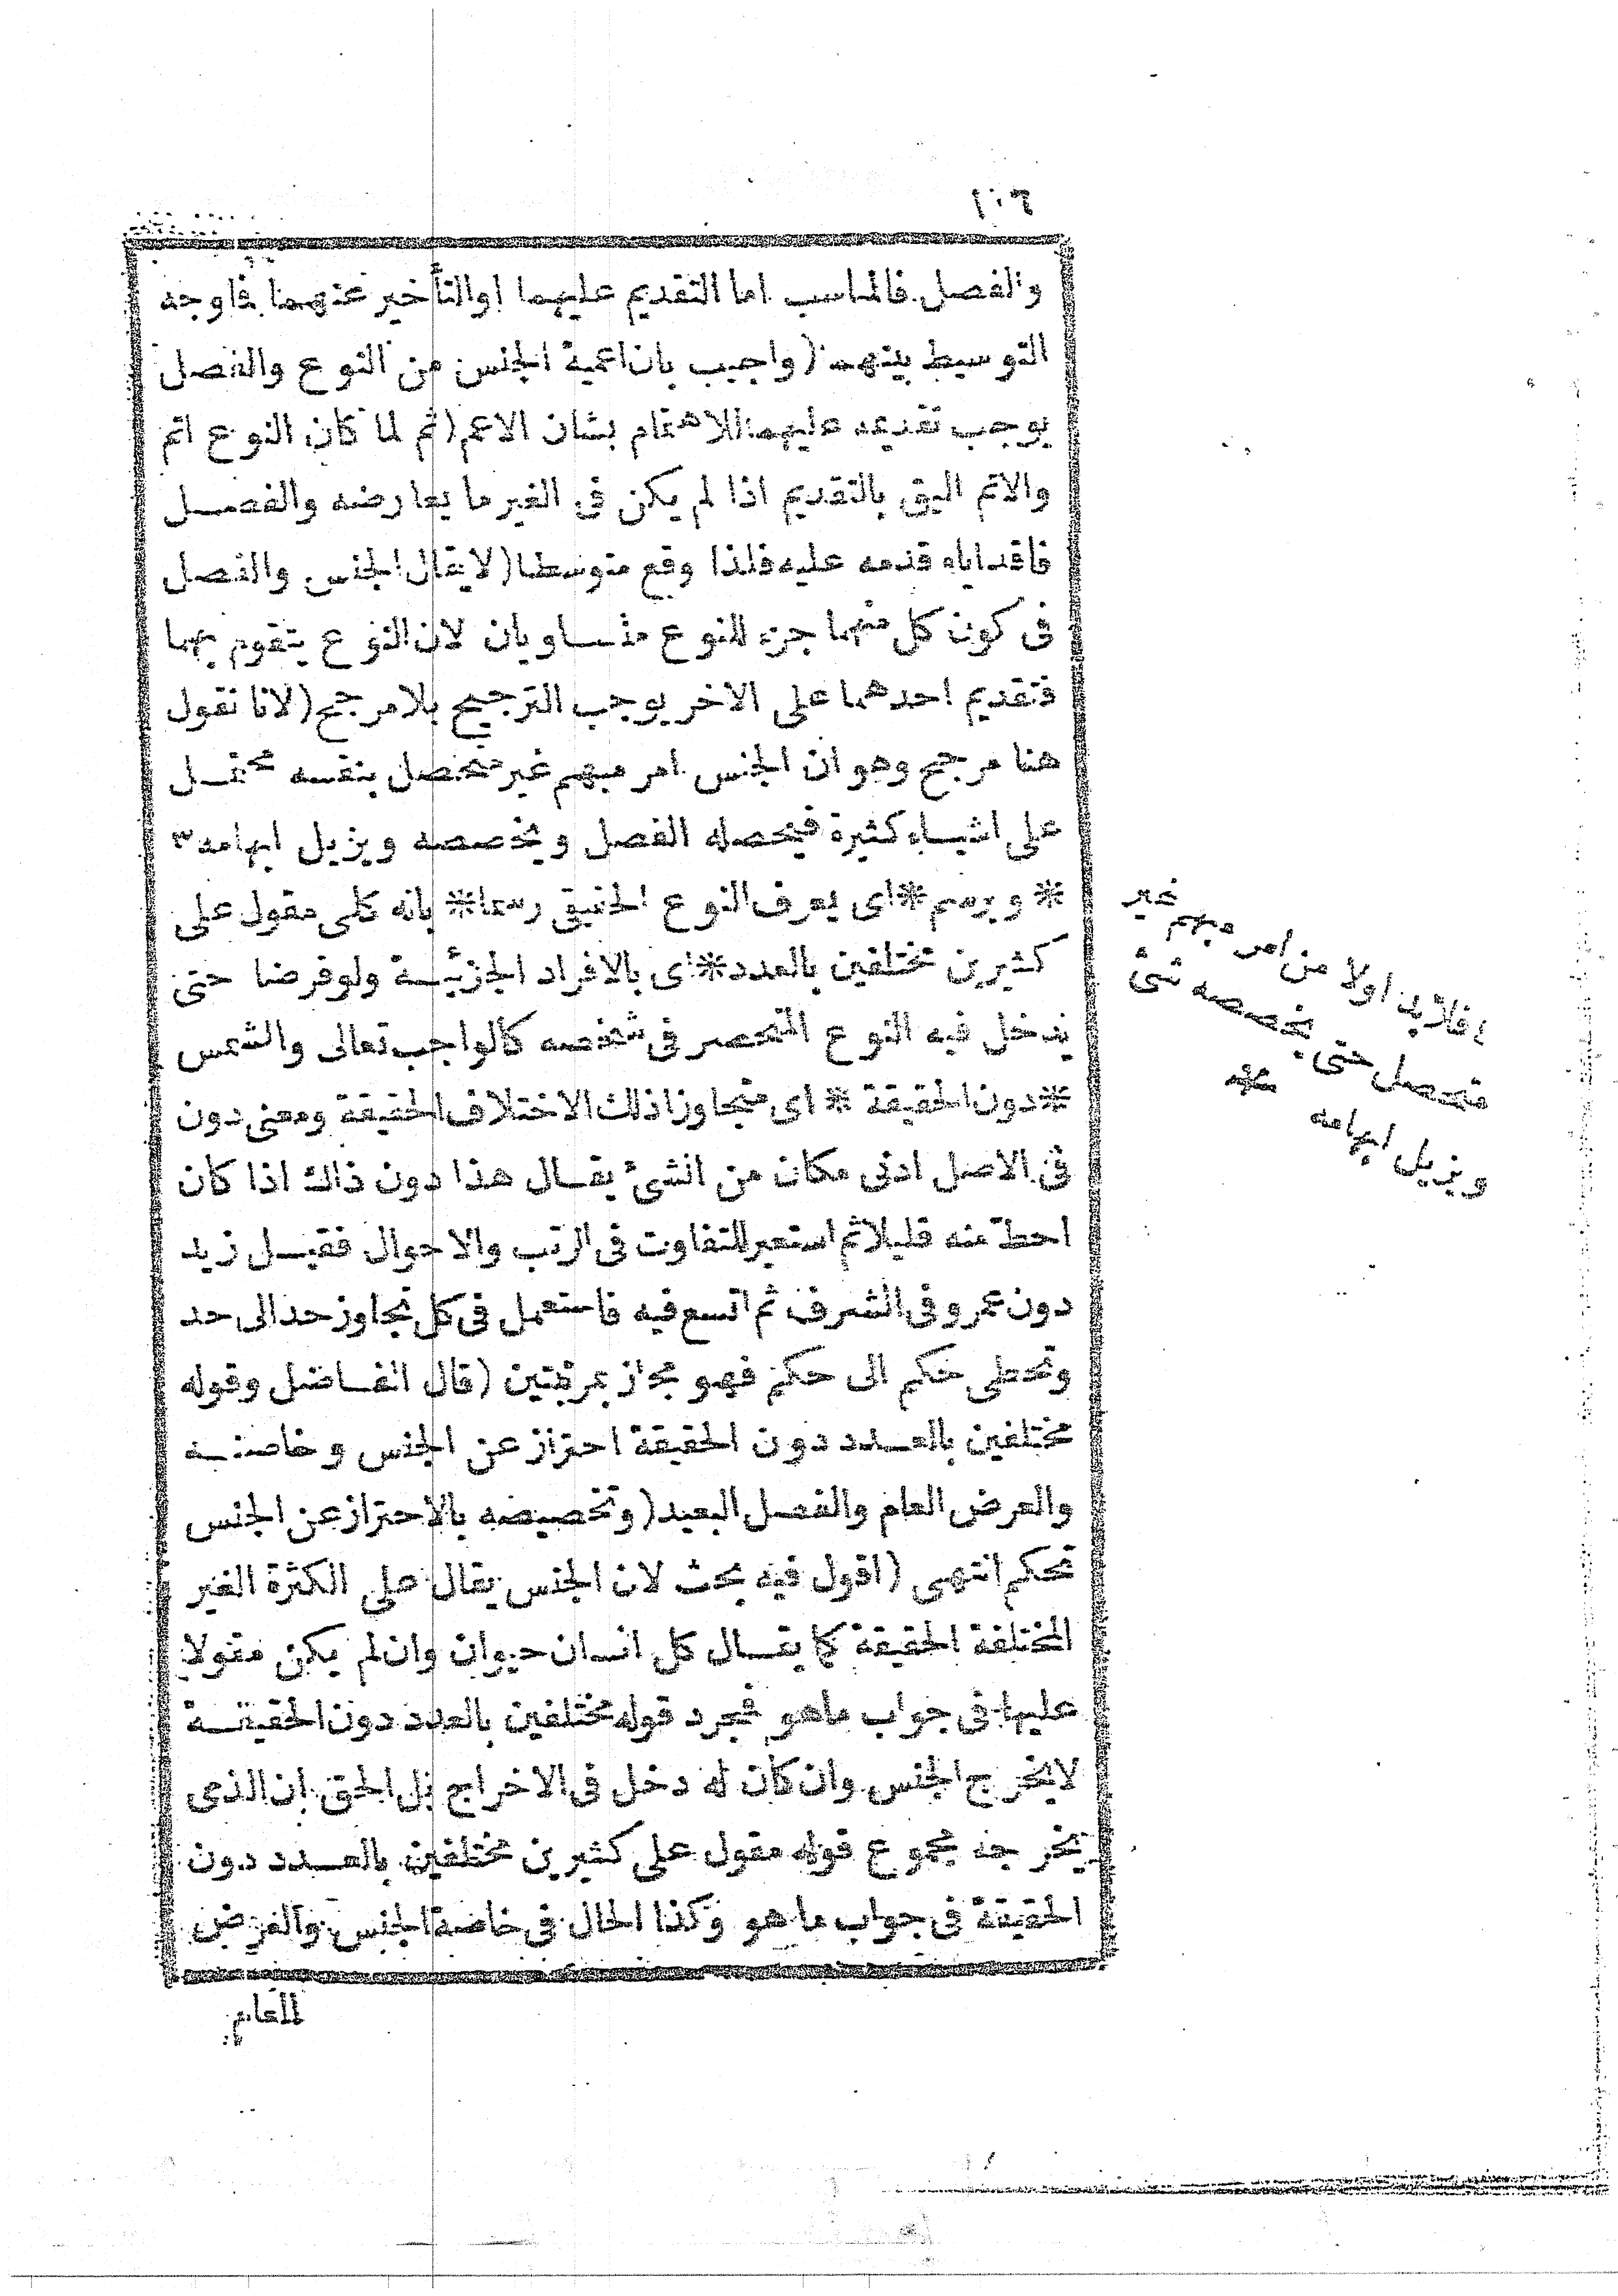 ١٠٦
والفصل فالمناسب اما التقديم عليهما او التأخير عنهما فاوجه
التوسيط بينهما (واجيب بان اعمية الجنس من النوع والفصل
يوجب تقديمه عليهما للاهتمام بشان الاعم (ثم لما كان النوع اتم
والاتم اليق بالتقديم اذا لم يكن فى الغير ما يعارضه والفصل
فاقد اياه قدمه عليه فلذا وقع متوسطا (لا يقال الجنس والفصل
فى كون كل منهما جزء للنوع متساويان لان النوع يتقوم بهما
فتقديم احدهما على الاخر يوجب الترجيح بلا مرجح (لانا نقول
هنا مرجح وهو ان الجنس امر مبهم غير متحصل بنفسه محتمل
على اشياء كثيرة فيحصله الفصل ويخصصه ويزيل ابهامه ٣
* ويرسم * اى يعرف النوع الحقيقى رسما * بانه كلى مقول على
كثيرين مختلفين بالعدد * اى بالافراد الجزئية ولو فرضا حتى
يدخل فيه النوع المنحصر فى شخصه كالواجب تعالى والشمس
* دون الحقيقة * اى متجاوزا ذلك الاختلاف الحقيقة ومعنى دون
فى الاصل ادنى مكان من الشئ يقال هذا دون ذاك اذا كان
احط منه قليلا ثم استعير للتفاوت فى الرتب والاحوال فقيل زيد
دون عمرو فى الشرف ثم اتسع فيه فاستعمل فى كل تجاوز حد الى حد
وتخطى حكم الى حكم فهو مجاز بمرتبتين (قال الفاضل وقوله
مختلفين بالعدد دون الحقيقة احتراز عن الجنس وخاصته
والعرض العام والفصل البعيد (وتخصيصه بالاحتراز عن الجنس
تحكم انتهى (اقول فيه بحث لان الجنس يقال على الكثرة الغير
المختلفة الحقيقة كما يقال كل انسان حيوان وان لم يكن مقولا
عليها فى جواب ما هو فمجرد قوله مختلفين بالعدد دون الحقيقة
لا يخرج الجنس وان كان له دخل فى الاخراج بل الحق ان الذى
يخرجه مجموع قوله مقول على كثيرين مختلفين بالعدد دون
الحقيقة فى جواب ما هو وكذا الحال فى خاصة الجنس والعرض
العام
اولا من امر مبهم غير
متحصل حتى يخصصه شئ
ويزيل ابهامه